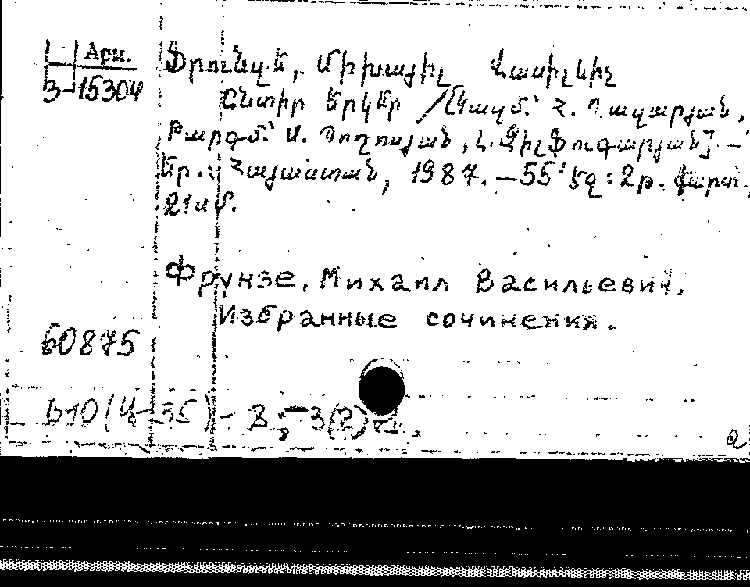 Арм.
3-15304
Ֆրունզե, Միխայիլ Վասիլևիչ
Ընտիր երկեր /Կազմ.՝ Հ. Ղազարյան,
Թարգմ.՝ Ս. Պողոսյան,
Եր.: Հայաստան, 1987. – 55՛ էջ: 2թ.
21սմ.
Фрунзе, Михаил Васильевич.
Избранные сочинения.
60875